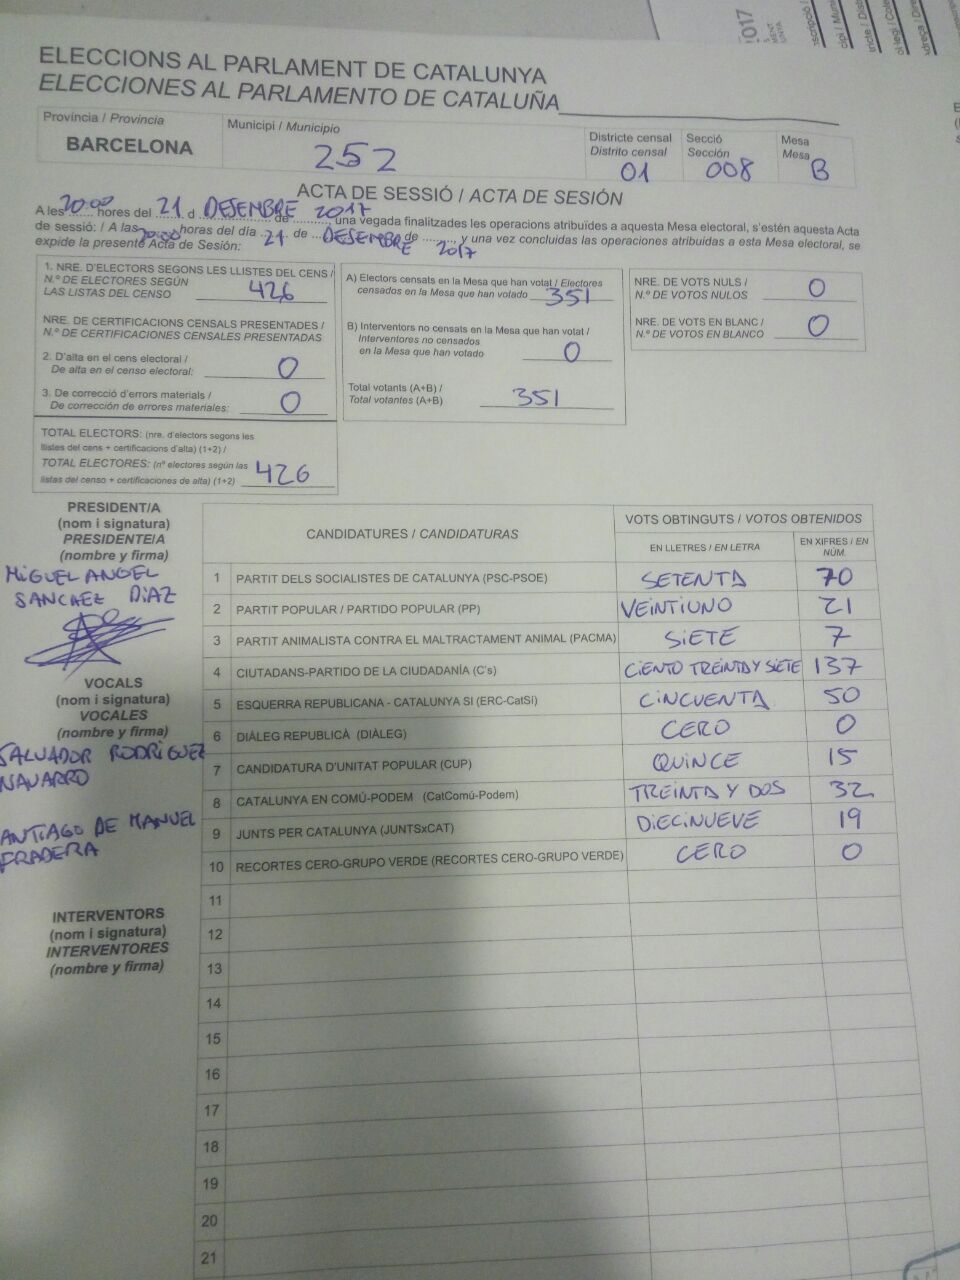 ELECCIONS AL PARLAMENT DE CATALUNYA
ELECCIONES AL PARLAMENTO DE CATALUÑA
Província / Provincia
BARCELONA
Municipi / Municipio
252
Districte censal
Distrito censal
01
Secció
Sección
008
Mesa
Mesa
B
ACTA DE SESSIÓ / ACTA DE SESIÓN
A les 20:00 hores del 21 d DESEMBRE de 2017, una vegada finalitzades les operacions atribuïdes a aquesta Mesa electoral, s'estén aquesta Acta
de sessió: / A las 20:00 horas del día 21 de DESEMBRE de 2017, y una vez concluidas las operaciones atribuidas a esta Mesa electoral, se
expide la presente Acta de Sesión:
1. NRE. D'ELECTORS SEGONS LES LLISTES DEL CENS /
N.º DE ELECTORES SEGÚN
LAS LISTAS DEL CENSO 426
NRE. DE CERTIFICACIONS CENSALS PRESENTADES /
N.º DE CERTIFICACIONES CENSALES PRESENTADAS
2. D'alta en el cens electoral /
De alta en el censo electoral: 0
3. De correcció d'errors materials /
De corrección de errores materiales: 0
TOTAL ELECTORS: (nre. d'electors segons les
llistes del cens + certificacions d'alta) (1+2) /
TOTAL ELECTORES: (nº electores según las
listas del censo + certificaciones de alta) (1+2) 426
A) Electors censats en la Mesa que han votat / Electores
censados en la Mesa que han votado 351
B) Interventors no censats en la Mesa que han votat /
Interventores no censados
en la Mesa que han votado 0
Total votants (A+B) /
Total votantes (A+B) 351
NRE. DE VOTS NULS /
N.º DE VOTOS NULOS 0
NRE. DE VOTS EN BLANC /
N.º DE VOTOS EN BLANCO 0
PRESIDENT/A
(nom i signatura)
PRESIDENTE/A
(nombre y firma)
MIGUEL ANGEL
SANCHEZ DIAZ
VOCALS
(nom i signatura)
VOCALES
(nombre y firma)
SALVADOR RODRIGUEZ
NAVARRO
ANTIAGO DE MANUEL
FRADERA
INTERVENTORS
(nom i signatura)
INTERVENTORES
(nombre y firma)
CANDIDATURES / CANDIDATURAS
VOTS OBTINGUTS / VOTOS OBTENIDOS
EN LLETRES / EN LETRA
EN XIFRES / EN
NÚM.
1 PARTIT DELS SOCIALISTES DE CATALUNYA (PSC-PSOE) SETENTA 70
2 PARTIT POPULAR / PARTIDO POPULAR (PP) VEINTIUNO 21
3 PARTIT ANIMALISTA CONTRA EL MALTRACTAMENT ANIMAL (PACMA) SIETE 7
4 CIUTADANS-PARTIDO DE LA CIUDADANÍA (C's) CIENTO TREINTA Y SIETE 137
5 ESQUERRA REPUBLICANA - CATALUNYA SI (ERC-CatSí) CINCUENTA 50
6 DIÀLEG REPUBLICÀ (DIÀLEG) CERO 0
7 CANDIDATURA D'UNITAT POPULAR (CUP) QUINCE 15
8 CATALUNYA EN COMÚ-PODEM (CatComú-Podem) TREINTA Y DOS 32
9 JUNTS PER CATALUNYA (JUNTSxCAT) DIECINUEVE 19
10 RECORTES CERO-GRUPO VERDE (RECORTES CERO-GRUPO VERDE) CERO 0
11
12
13
14
15
16
17
18
19
20
21